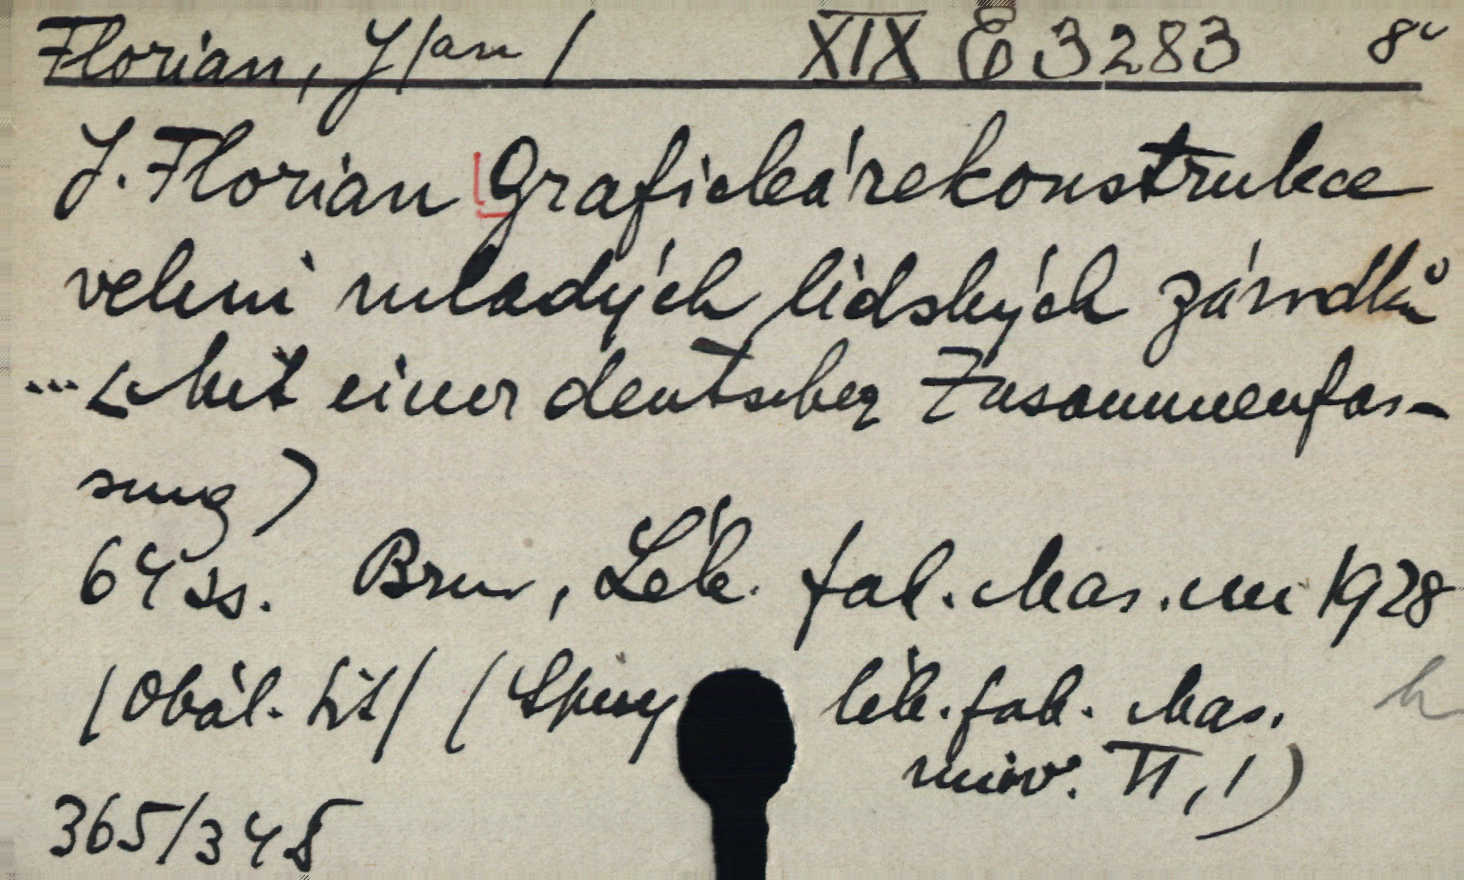 Florian, J/an/ XIX E 3283 8°
J. Florian Grafická rekonstrukce
velmi mladých lidských zárodků
... <Mit einer deutschen Zusammenfas-
sung>
64 ss. Brno, Lék. fak. Mas. un 1928
/Obál. tit/ /Spisy lék. fak. Mas.
univ. VI, 1)
365/345